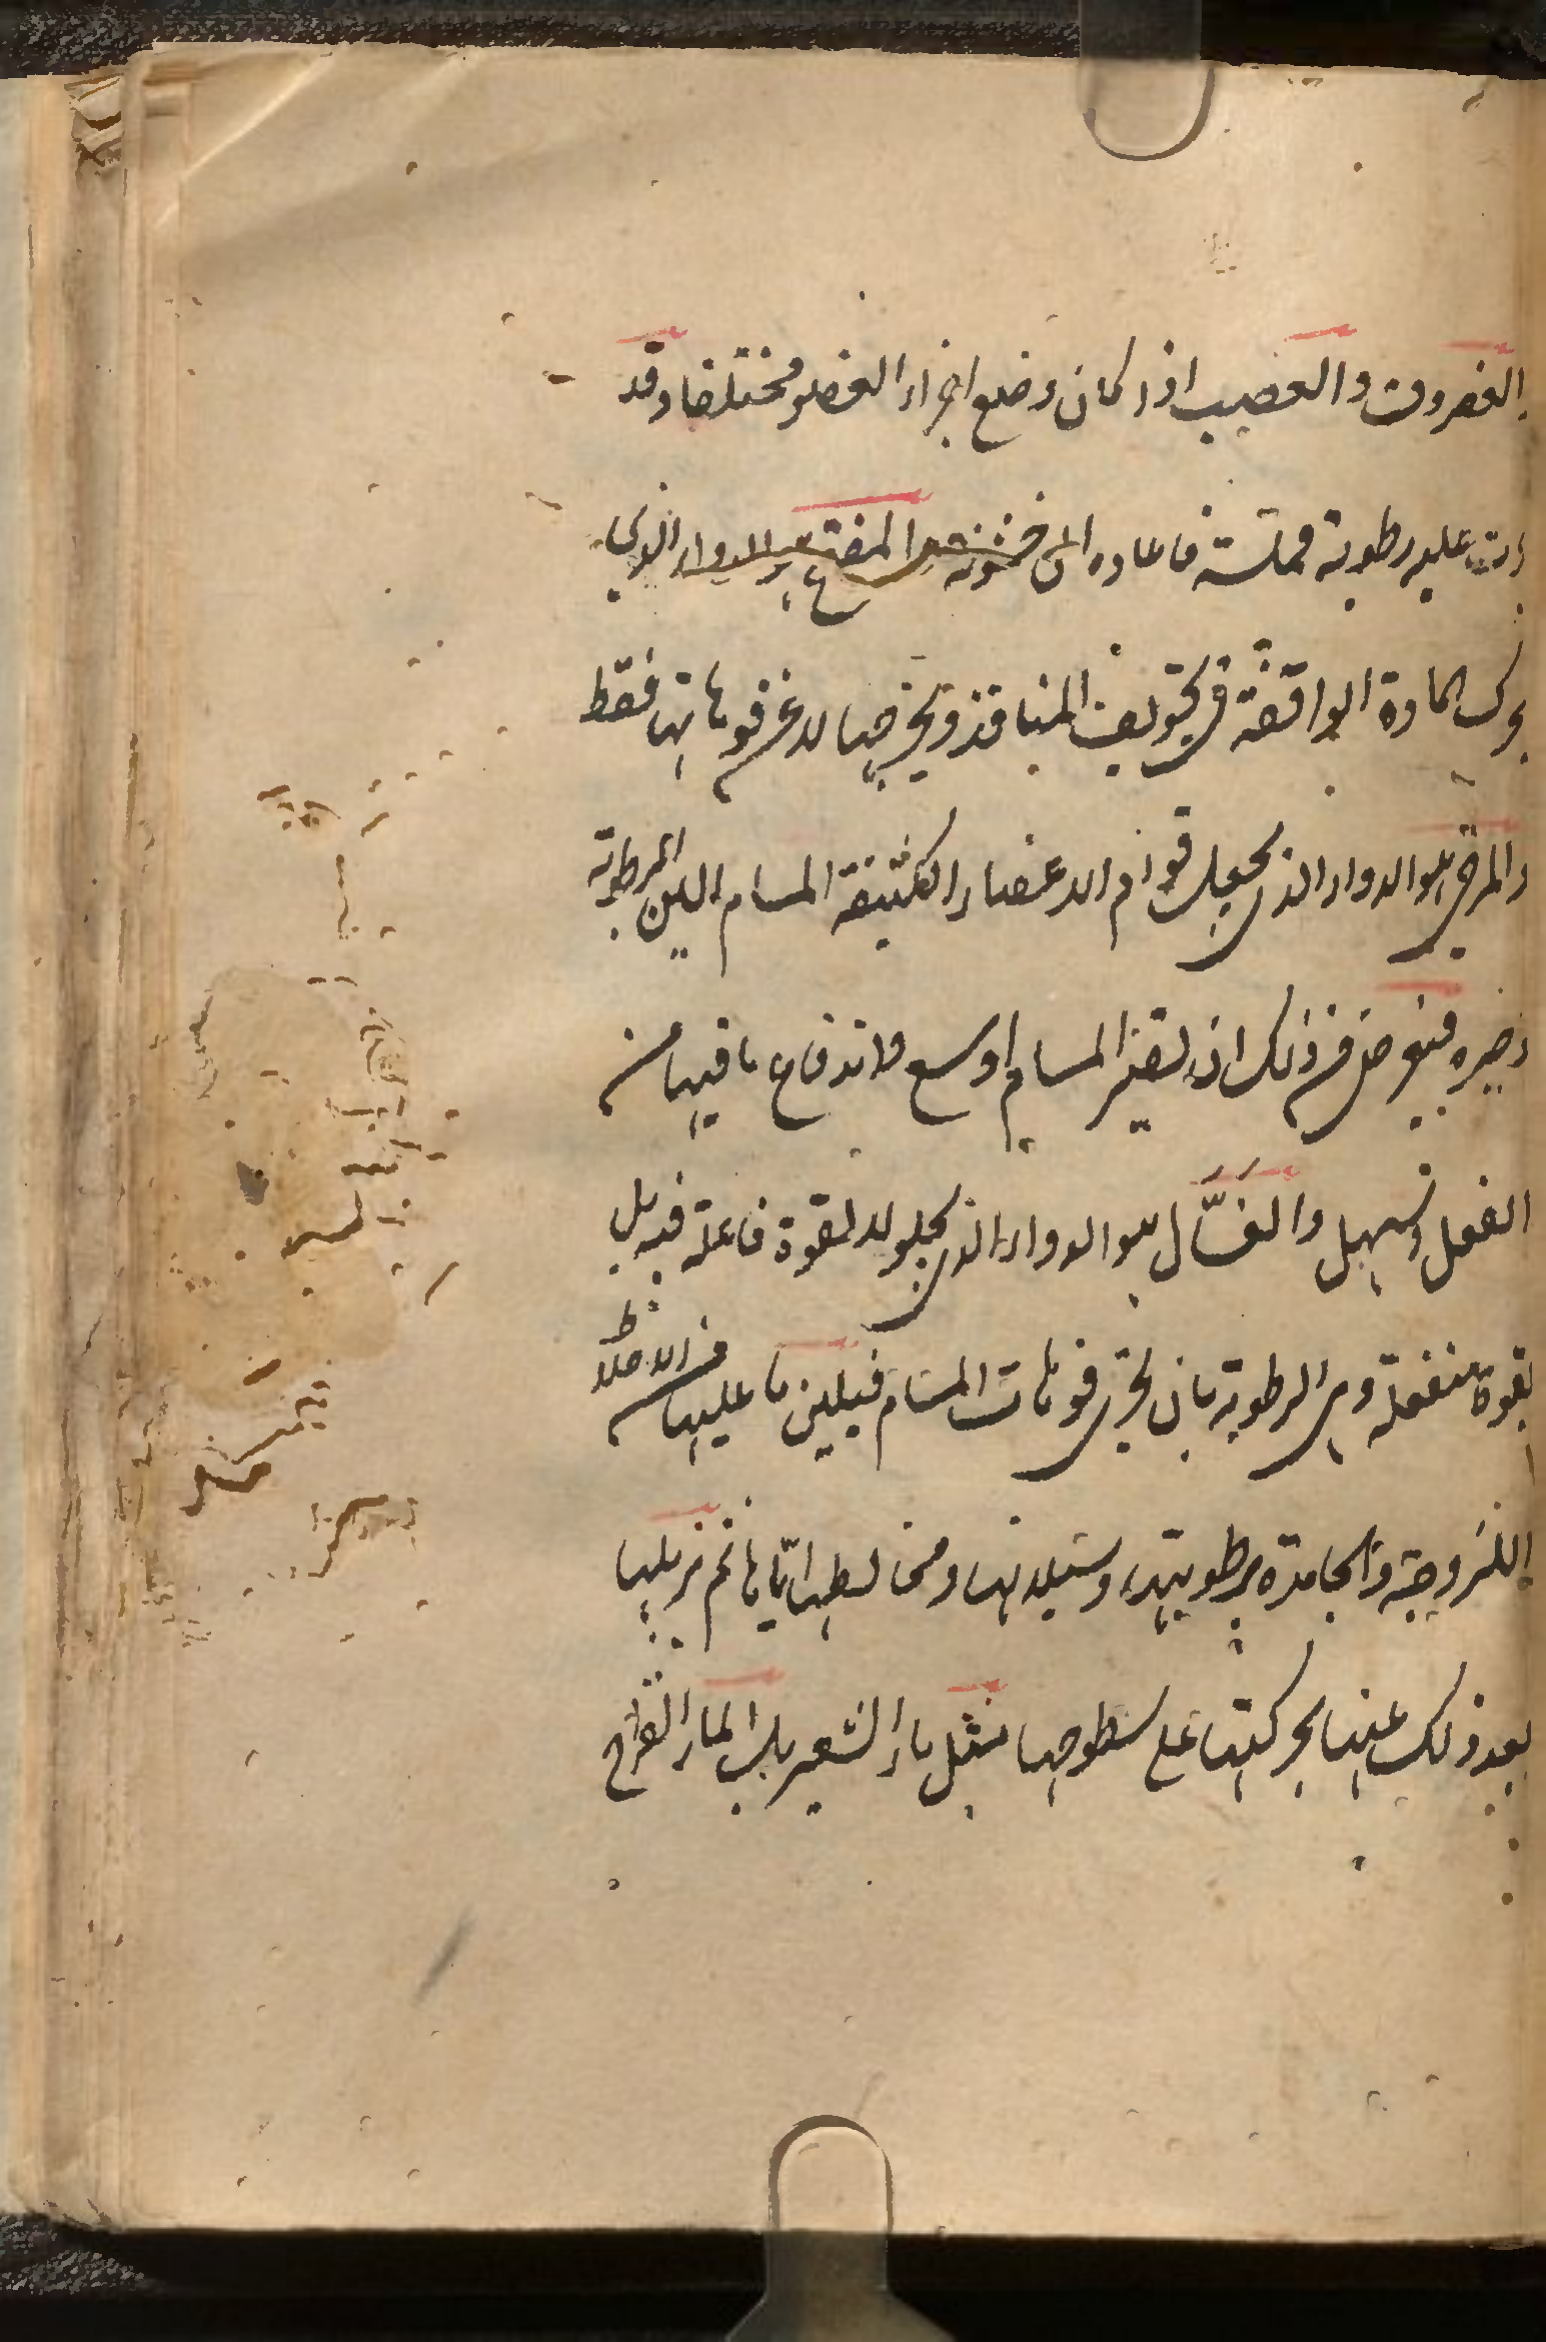 الغضروف والعصب اذا كان وضع اجزاء العضو مختلفا وقد
عليه رطوبة مملسة فاعاده الى خشونته المفتح هو الدواء الذي
يحرك المادة الواقفة في تجويف المنافذ ويخرجها لا عن فوهاتها فقط
والمرخي هو الدواء الذي يجعل قوام الاعضاء الكثيفة المسام الين لرطوبته
وغيره فيعرض من ذلك ان تصير المسام اوسع واندفاع ما فيها من
الفضل اسهل والغسّال هو الدواء الذي يجلو لا لقوة فاعلة فيه بل
بقوة منفعلة وهي الرطوبة بان يجري فوهات المسام فيلين ما عليها من الاخلاط
اللزوجة والجامدة برطوبتها وسيلانها ومخالطها اياها ثم يزيلها
بعد ذلك عنها بحركتها على سطوحها مثل ماء الشعير بل الماء القراح